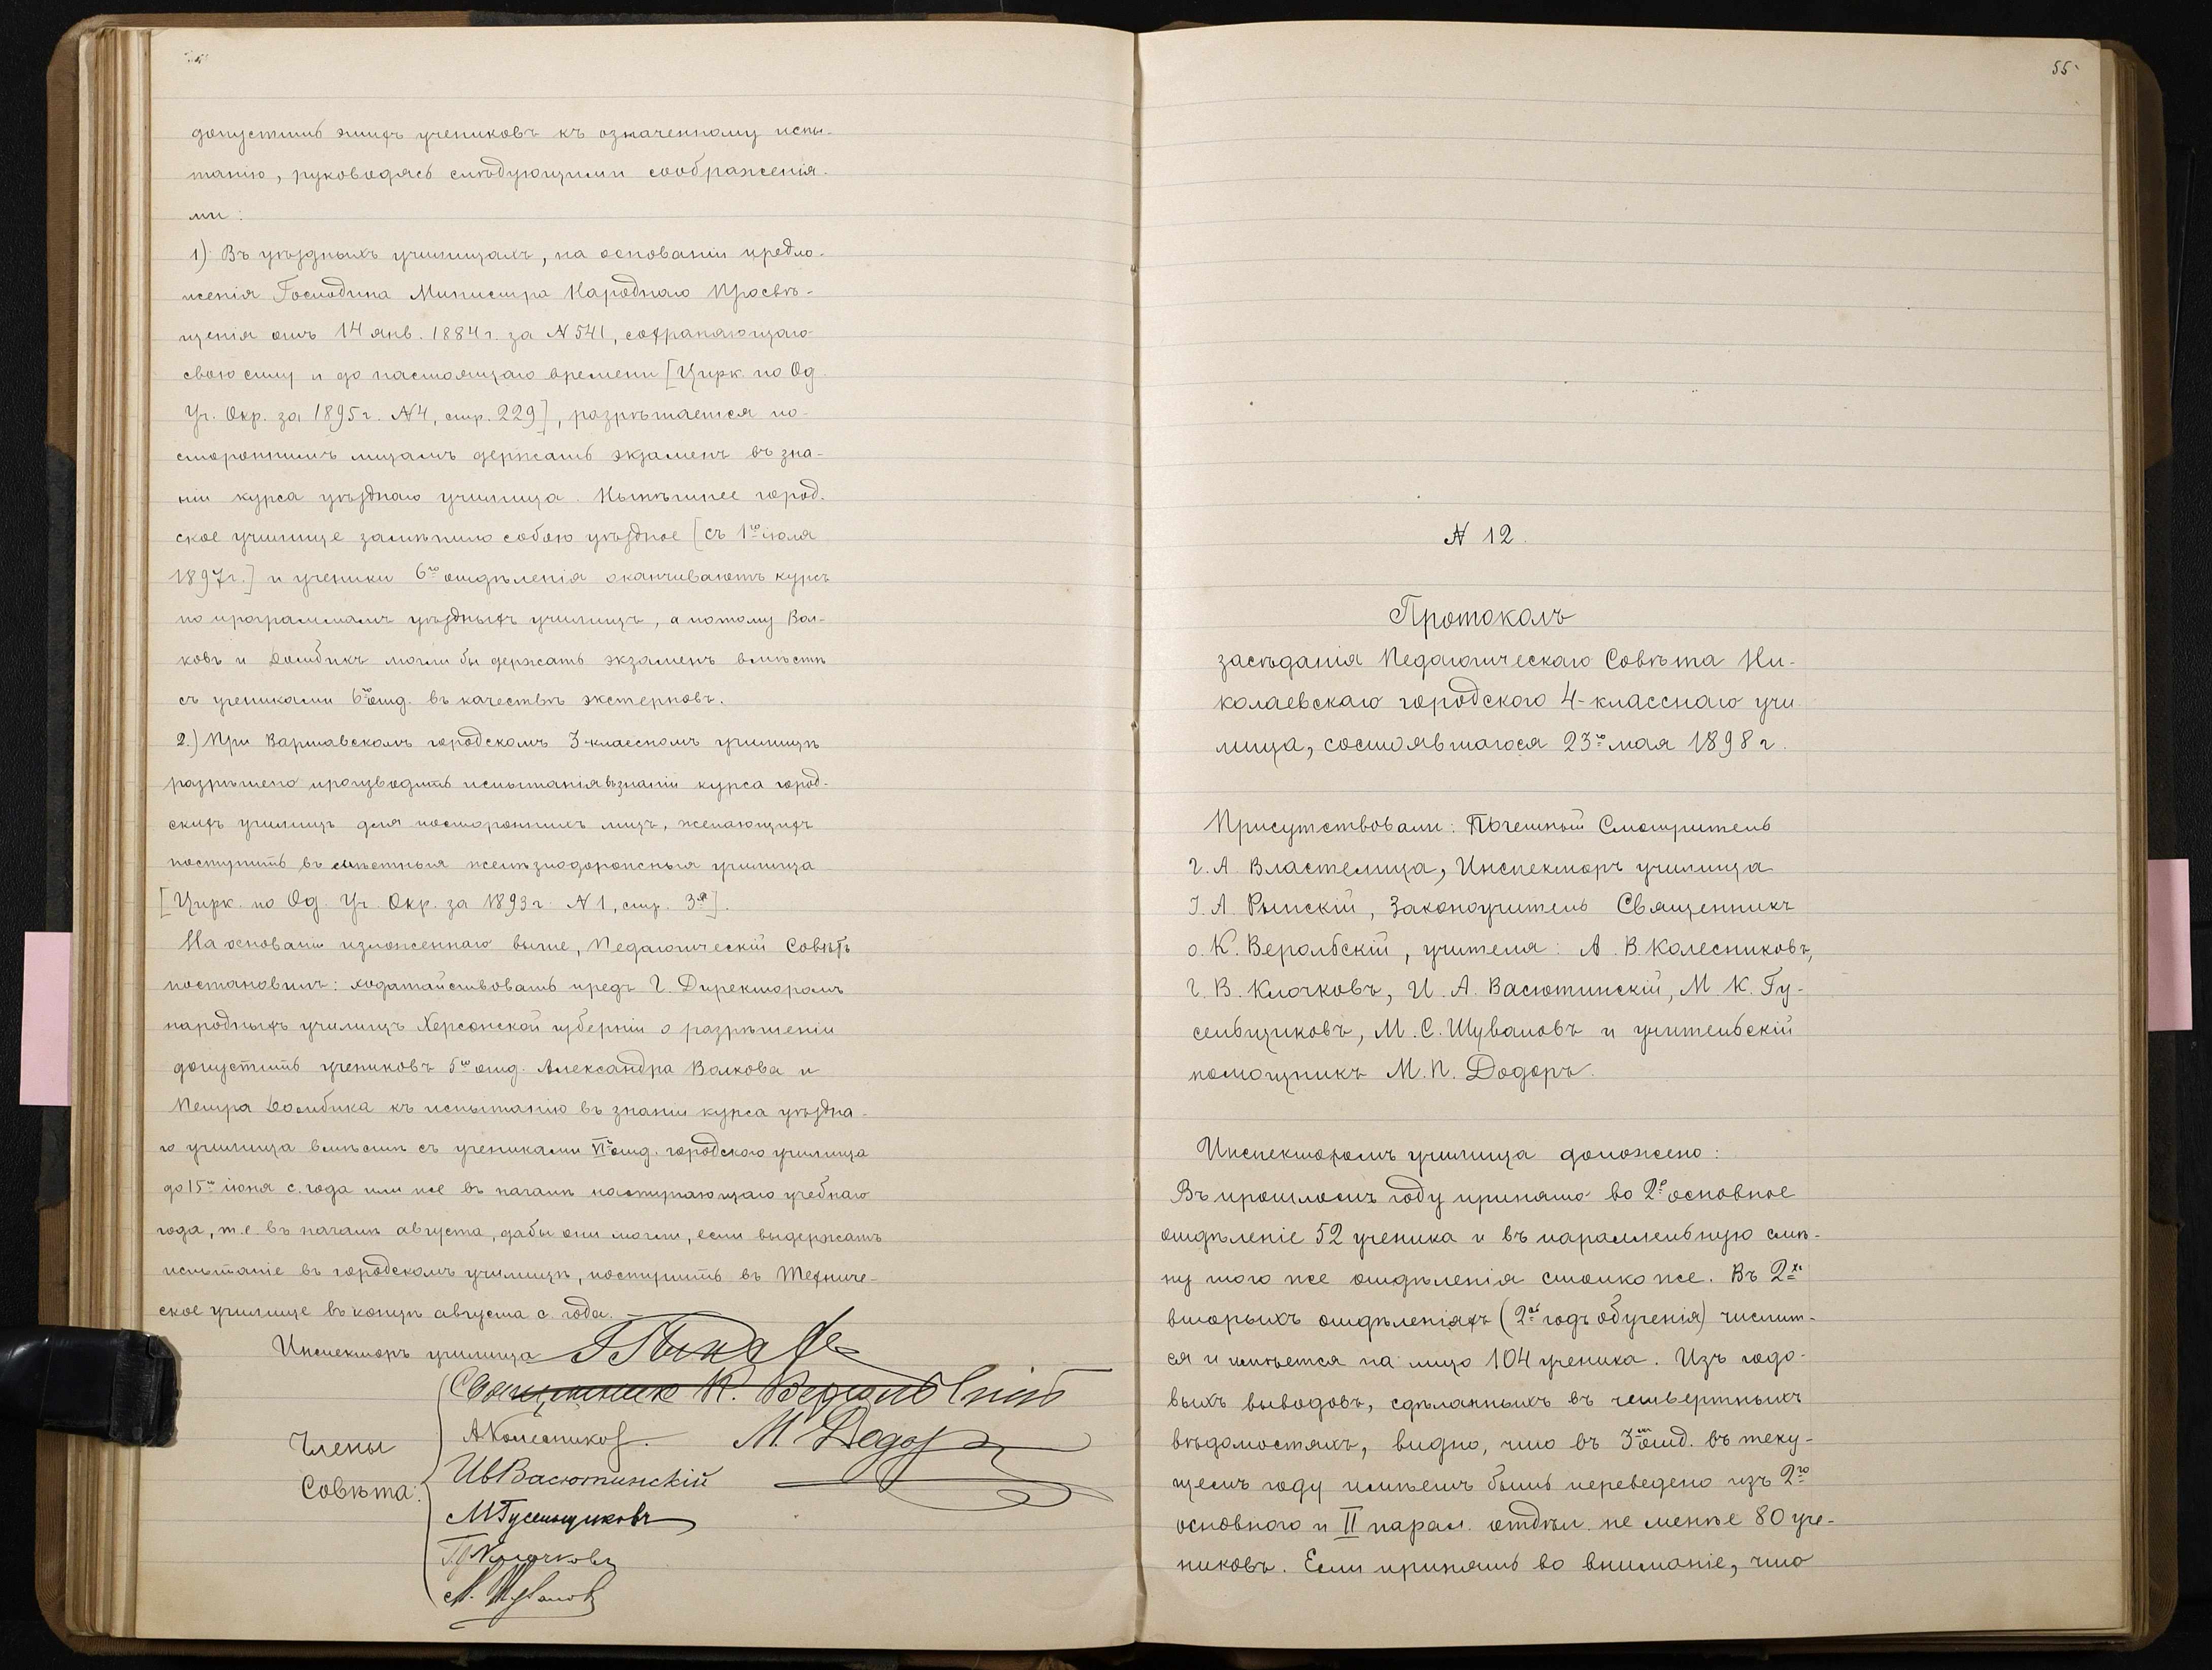 допустить этихъ учениковъ къ означенному испы-
танію, руководясь слѣдующими соображенія-
ми:
1) Въ уѣздныхъ училищахъ, на основаніи предло-
женія Господина Министра Народнаго Просвѣ-
щенія отъ 14 янв. 1884 г. за № 541, сохраняющаго
свою силу и до настоящаго времени [Цирк. по Од.
Уч. Окр. за 1895 г. №4, стр. 229], разрѣшается по-
стороннимъ лицамъ держать экзаменъ въ зна-
ніи курса уѣзднаго училища. Нынѣшнее город-
ское училище замѣнило собою уѣздное [съ 1го іюля
1897 г.] и ученики 6го отдѣленія оканчиваютъ курсъ
по программамъ уѣздныхъ училищъ, а потому Вол-
ковъ и Домбикъ могли бы держать экзаменъ вмѣстѣ
съ учениками 6го отд. въ качествѣ экстерновъ.
2.) При Варшавскомъ городскомъ 3-классномъ училищѣ
разрѣшено производить испытанія въ знаніи курса город-
скихъ училищъ для постороннихъ лицъ, желающихъ
поступить въ мѣстныя желѣзнодорожныя училища
[Цирк. по Од. Уч. Окр. за 1893 г. №1, стр. 3я].
На основаніи изложеннаго выше, Педагогическій Совѣтъ
постановилъ: ходатайствовать предъ Г. Директоромъ
народныхъ училищъ Херсонской губерніи о разрѣшеніи
допустить учениковъ 5го отд. Александра Волкова и
Петра Домбика къ испытанію въ знаніи курса уѣздна-
го училища вмѣстѣ съ учениками VIго отд. городского училища
до 15го іюня с. года или же въ началѣ наступающаго учебнаго
года, т.е. въ началѣ августа, дабы они могли, если выдержатъ
испытаніе въ городскомъ училищѣ, поступить въ Техниче-
ское училище въ концѣ августа с. года.
Инспекторъ училища
Священникъ К. Верольскій
Члены
Совѣта:
А Колесников. М. Додор
Ив Васютинскій
М Гусельщиковъ
Г Клочковъ
М. Шувалов
55
№ 12.
Протоколъ
засѣданія Педагогическаго Совѣта Ни-
колаевскаго городского 4-класснаго учи
лища, состоявшагося 23го мая 1898 г.
Присутствовали: Почетный Смотритель
Г. А. Властелица, Инспекторъ училища
І. А. Рымскій, Законоучитель Священникъ
о. К. Верольскій, учителя: А. В. Колесниковъ,
Г. В. Клочковъ, И. А. Васютинскій, М. К. Гу-
сельщиковъ, М. С. Шуваловъ и учительскій
помощникъ М. П. Додоръ.
Инспекторомъ училища доложено:
Въ прошломъ году принято во 2е основное
отдѣленіе 52 ученика и въ параллельную смѣ-
ну того же отдѣленія столько же. Въ 2хъ
вторыхъ отдѣленіяхъ (2ой годъ обученія) числит-
ся и имѣется на лицо 104 ученика. Изъ годо-
выхъ выводовъ, сдѣланныхъ въ четвертныхъ
вѣдомостяхъ, видно, что въ 3 отд. въ теку-
щемъ году имѣетъ быть переведено изъ 2го
основного и II парал. отдѣл. не менѣе 80 уче-
никовъ. Если принять во вниманіе, что